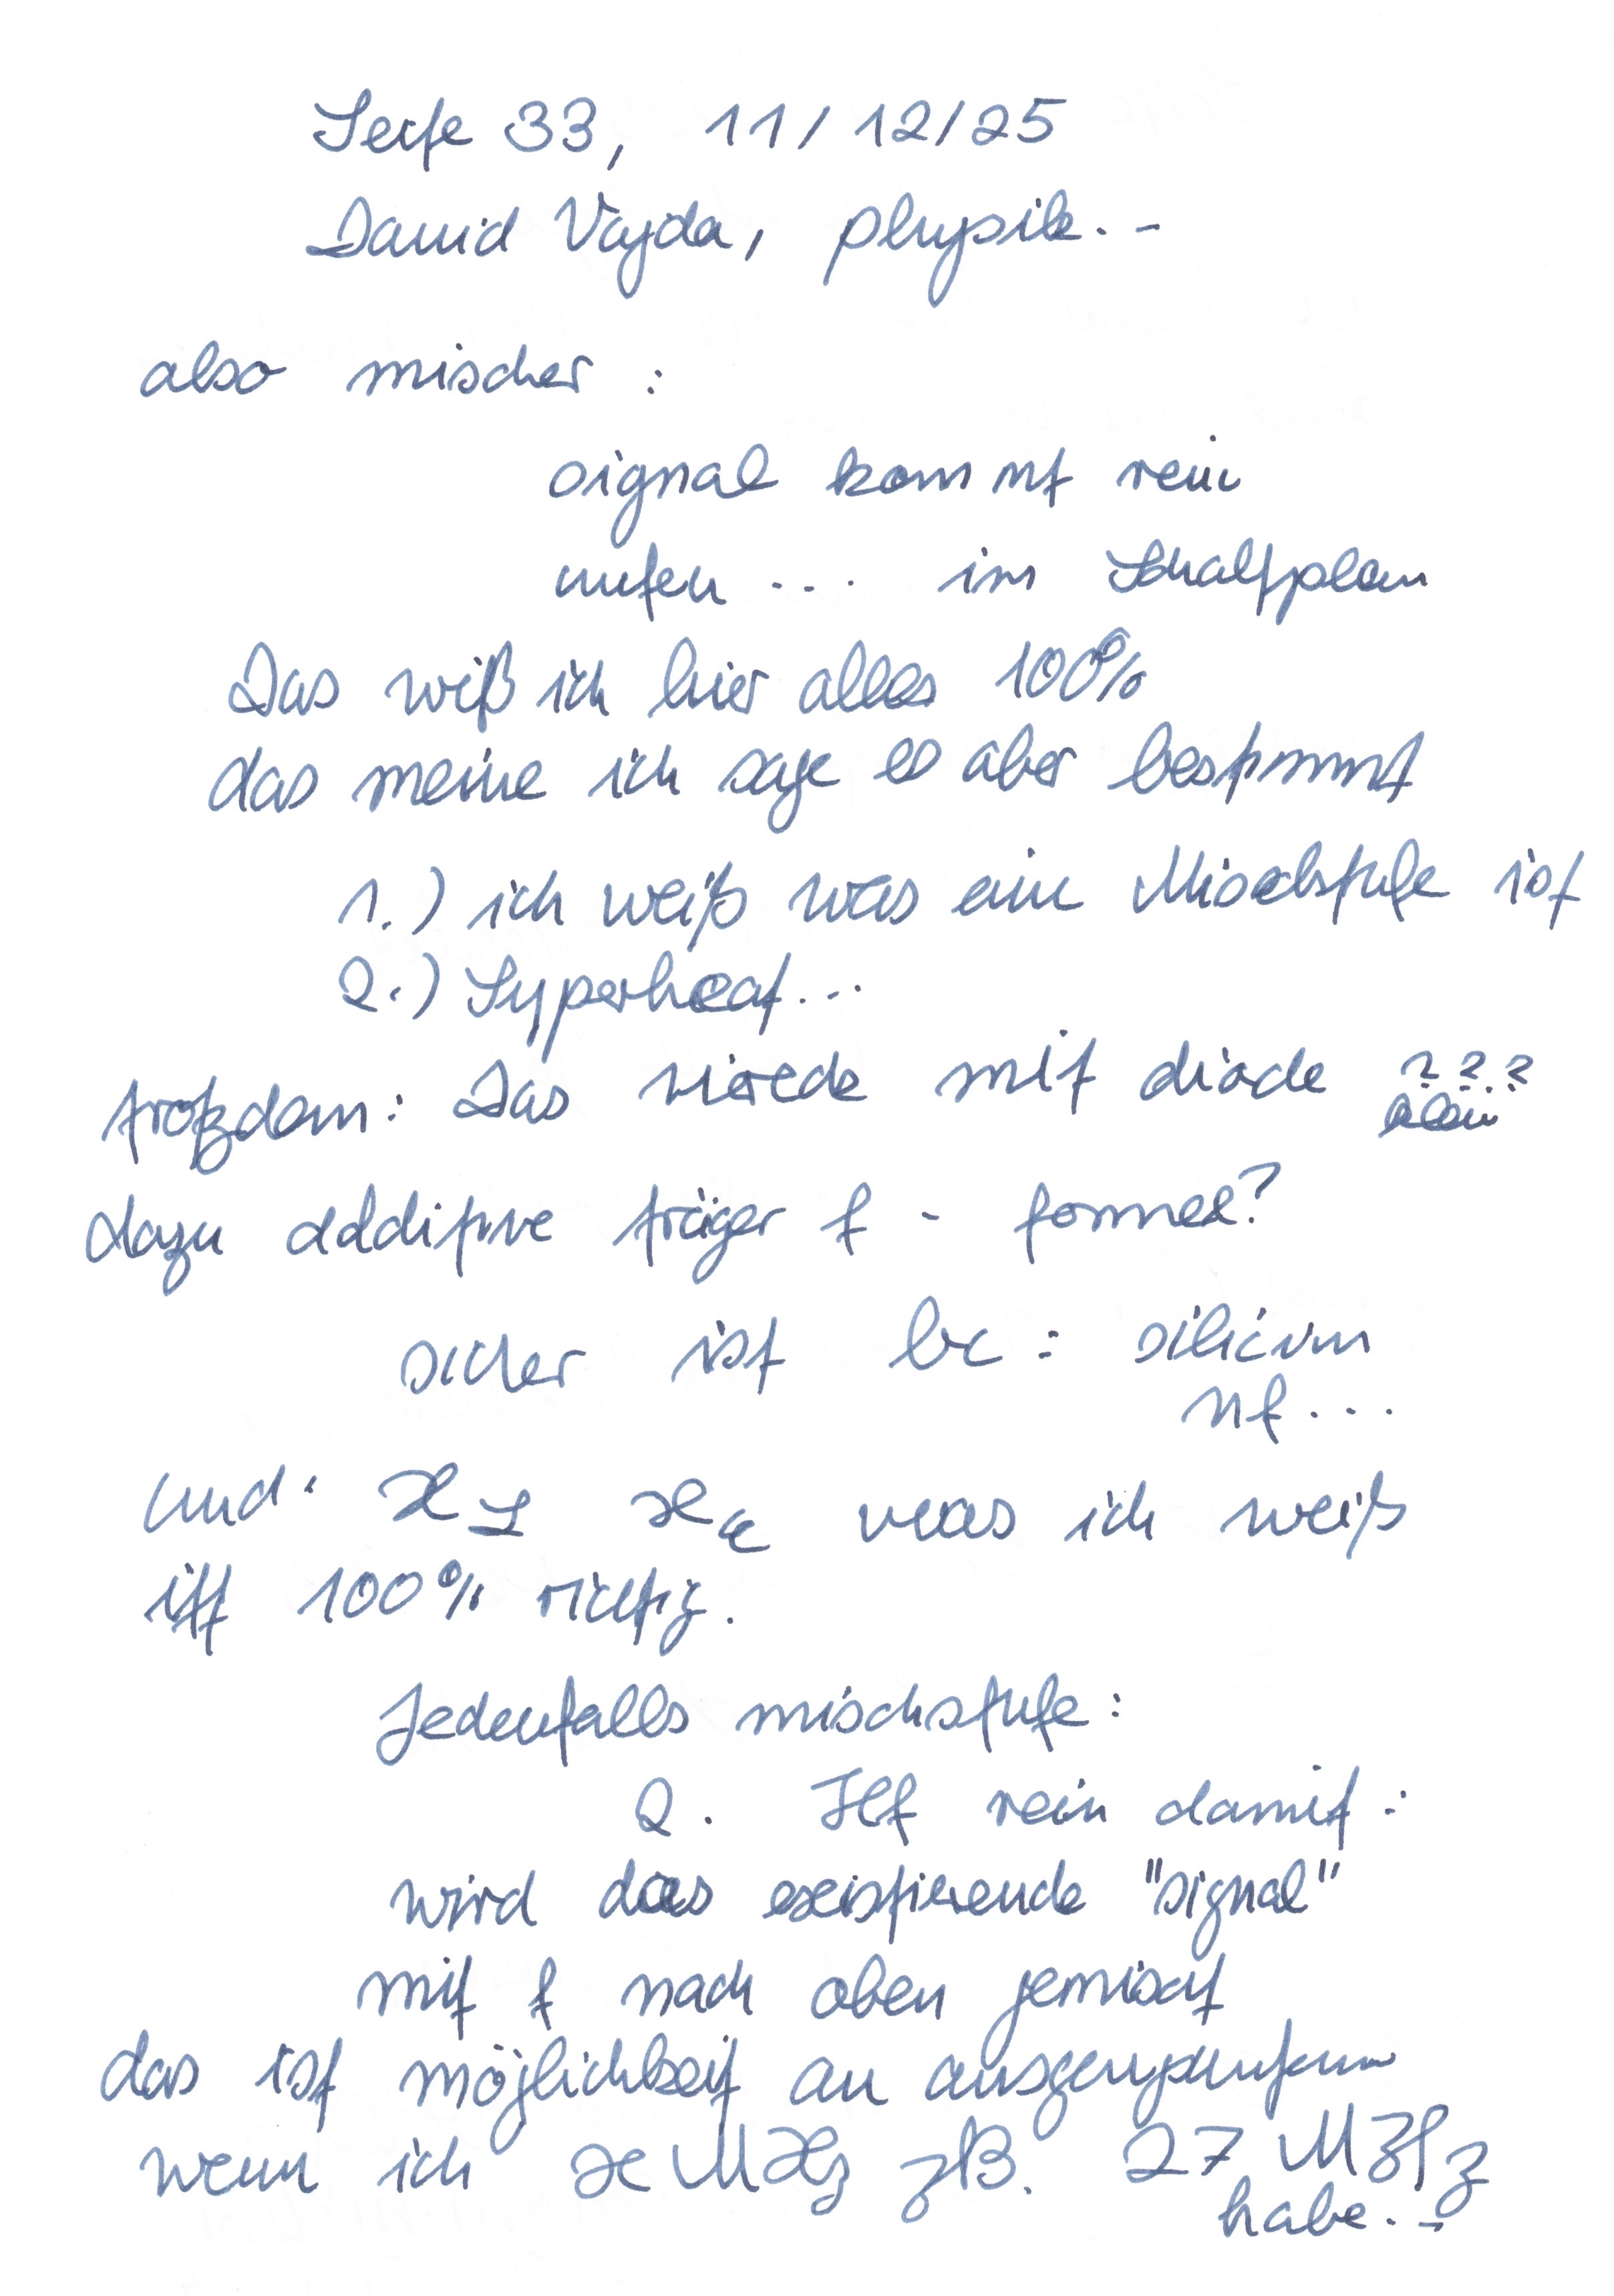 Seite 33, 11/12/25
David Vajda, physik. -
also mischer :
signal kommt rein
unten ... im Schaltplan
Das weiß ich hier alles 100%
das meine ich sage es aber bestimmt
1.) ich weiß was ein Mischstufe ist
2.) Superheat...
trotzdem: Das viereck mit diode ? ? ?
dazu additive träger f - formel?
sicher ist bc : silicium
nf...
und: X_L X_C was ich weiß
ist 100% richtig.
Jedenfalls mischstufe :
2. Hf rein damit :
wird das existierende "signal"
mit f nach oben gemischt
das ist möglichkeit an
wenn ich x MHz zB. 27 MHz
habe. -